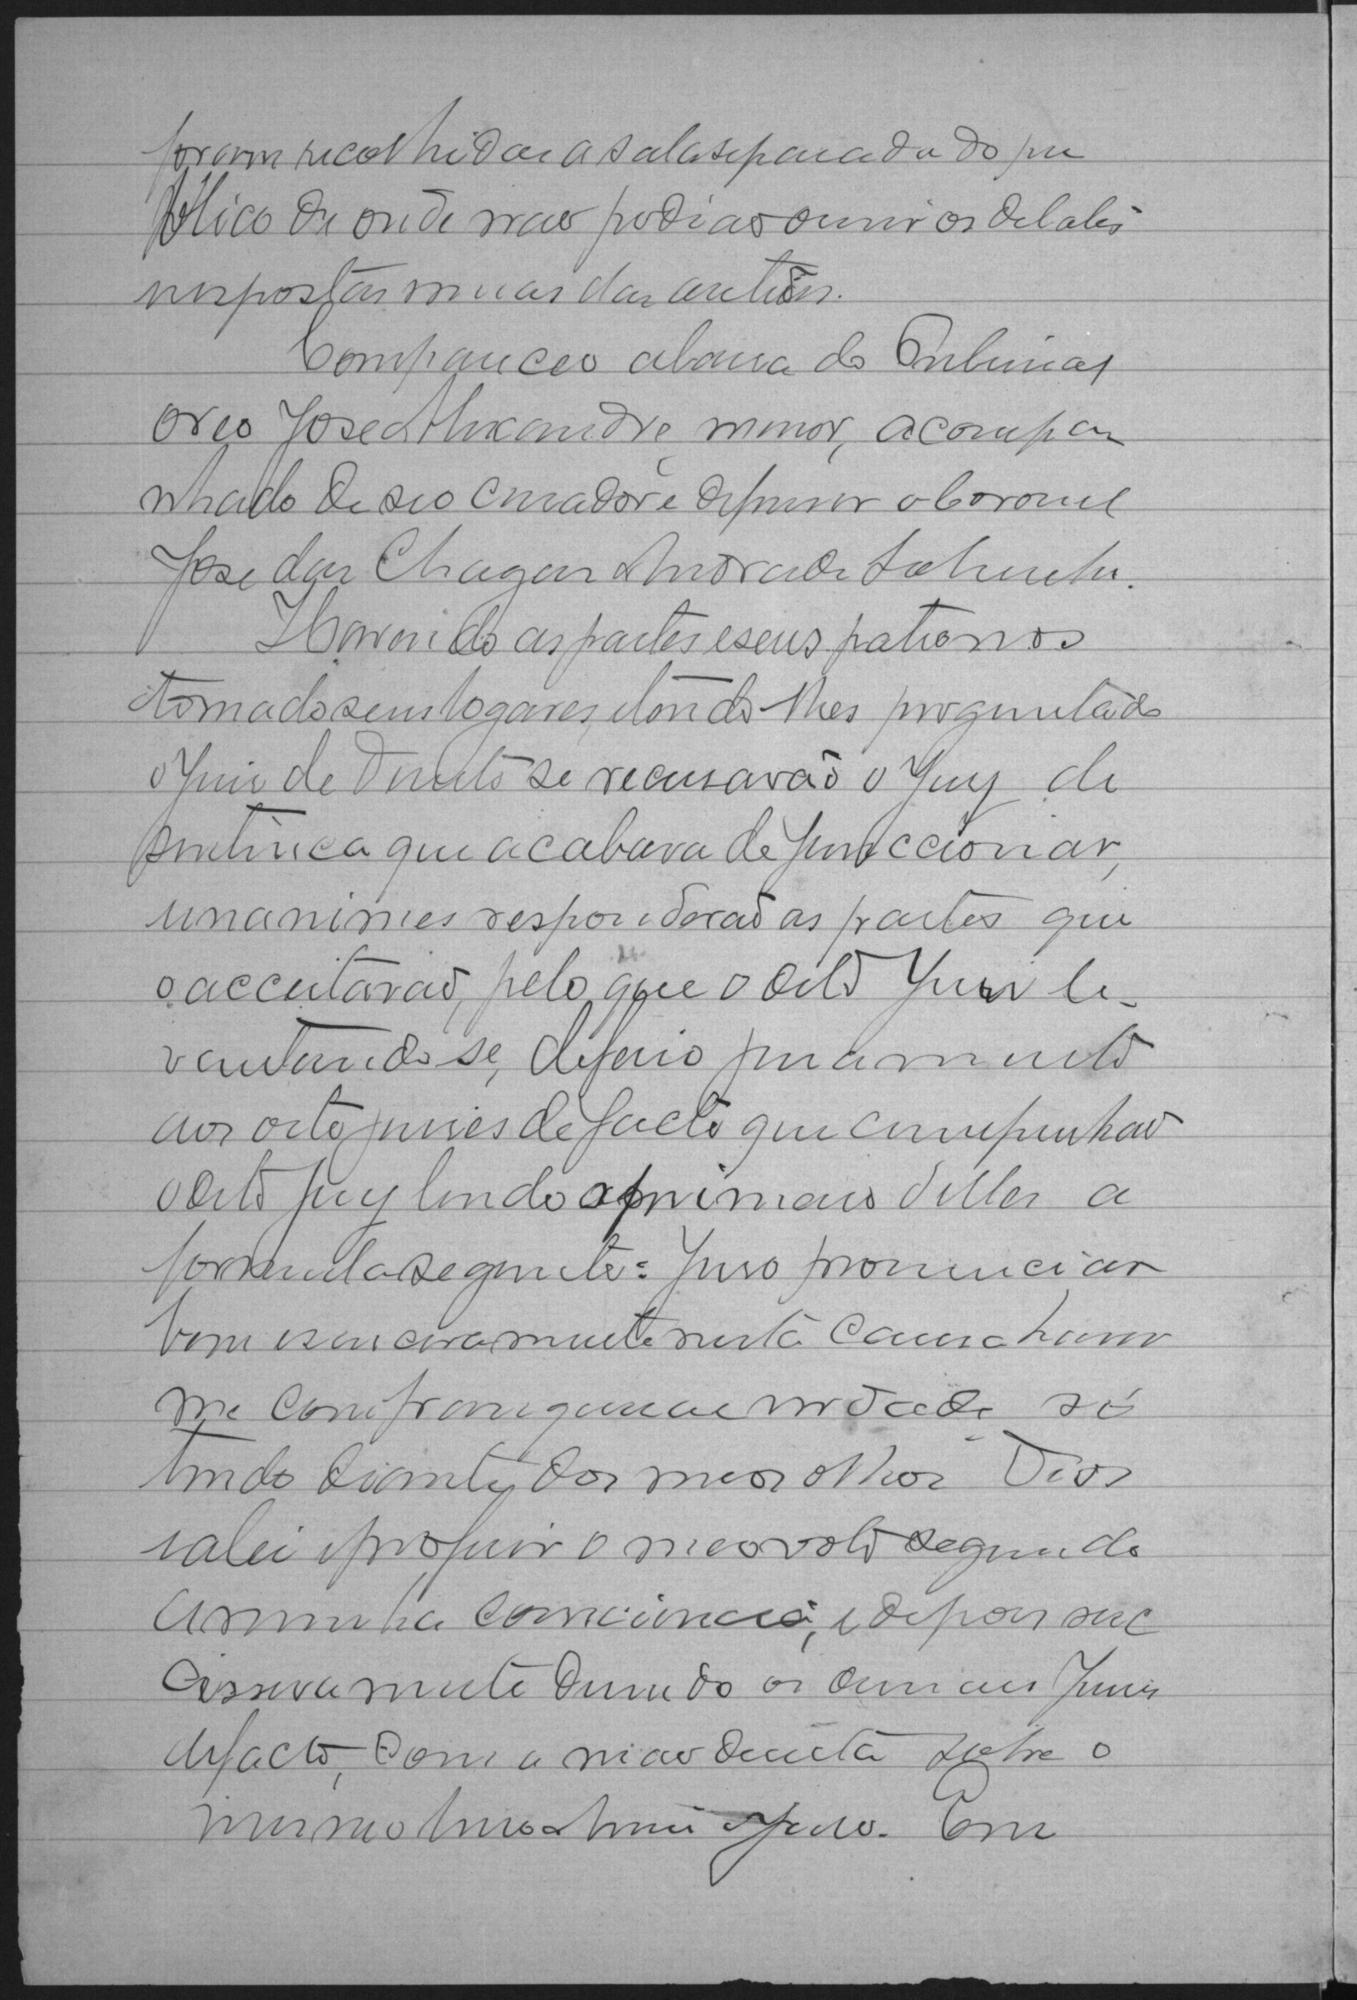 foram recolhidas a sala separada do pu
blico de onde nao podiao ouvir os debates
respostas umas das outras.
Compareceo a barra do Tribunal
o reo José Alexandre, menor, acompa
nhado de seo curador e defensor o Coronel
José das Chagas Andrade
Havendo as partes e seus patronos
tomado seus logares, e tendo-lhes preguntado
o Juiz de Direito se recusavão o Jury de
sentença que acabava de funccionar,
unanimes responderaõ as partes que
o acceitavaõ, pelo que o dito Juiz le-
vantando se, deferio juramento
aos oito juizes de facto que compunhaõ
o dito Jury lendo o primeiro delles a
formula seguinte: Juro pronunciar
bem e sinceramente nesta causa haver
me com franqueza e verdade, só
tendo diante dos meos olhos Deos
a lei e proferir o meo voto segundo
a minha consciencia, e depois suc
cessivamente dizendo os demais Juizes
de facto, com a mao direita sobre o
mesmo livro assim o juro. Em